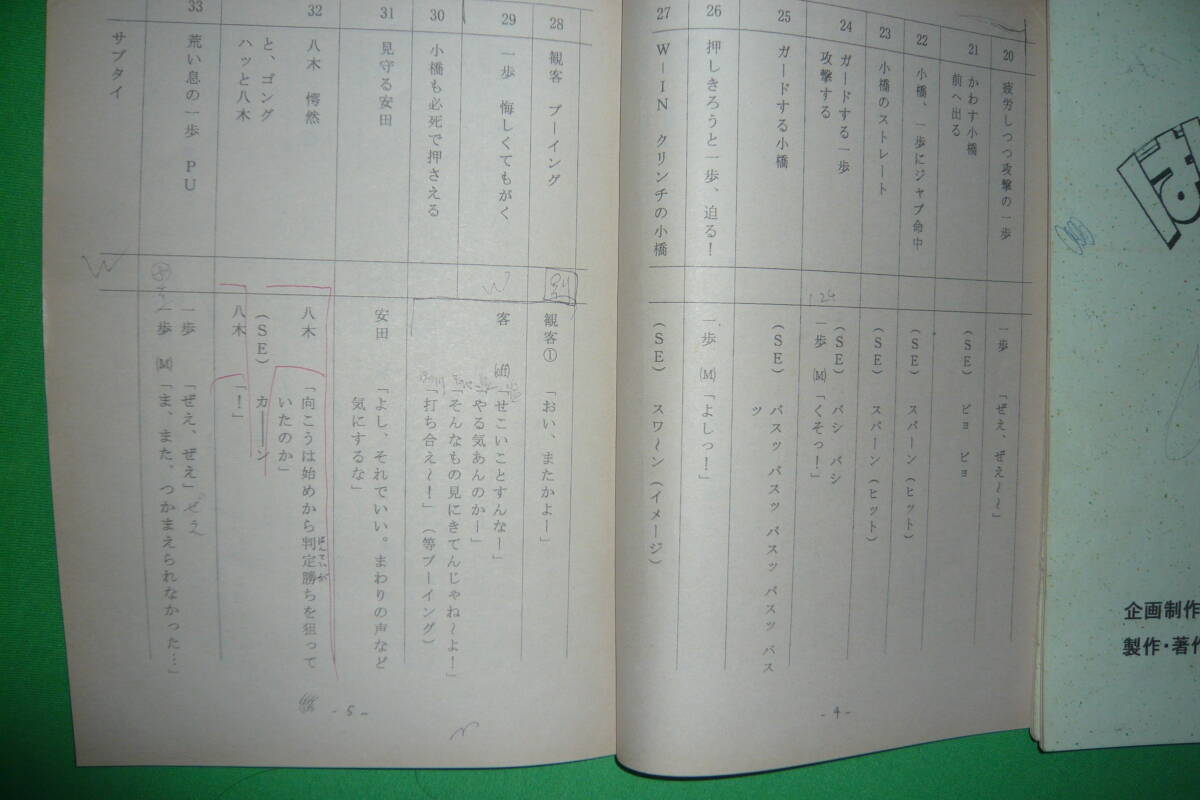 20
疲労しつつ攻撃の一歩
一歩 「ぜえ、ぜえ～～」
21
かわす小橋
前へ出る
(SE) ピョ ピョ
22
小橋、一歩にジャブ命中
(SE) スパーン(ヒット)
23
小橋のストレート
(SE) スパーン(ヒット)
24
ガードする一歩
攻撃する
(SE) バシ バシ
一歩 (M)「くそっ!」
25
ガードする小橋
(SE) バスッ バスッ バスッ バスッ バス
ッ
26
押しきろうと一歩、迫る!
一歩 (M)「よしっ!」
27
W－IN クリンチの小橋
(SE) スワ～ン(イメージ)
-4-
28
観客 ブーイング
観客① 「おい、またかよー」
29
一歩 悔しくてもがく
客 (off)「せこいことすんなー」
「やる気あんのかー」
30
小橋も必死で押さえる
「そんなもの見にきてんじゃね～よ!」
「打ち合え～!」(等ブーイング)
31
見守る安田
安田 「よし、それでいい。まわりの声など
気にするな」
32
八木 愕然
八木 「向こうは始めから判定勝ちを狙って
いたのか」
と、ゴング
(SE) カ――ン
ハッと八木
八木 「!」
33
荒い息の一歩 PU
一歩 「ぜえ、ぜえ」ぜえ
一歩 (M)「ま、また。つかまえられなかった…」
サブタイ
-5-
企画制作
製作・著作